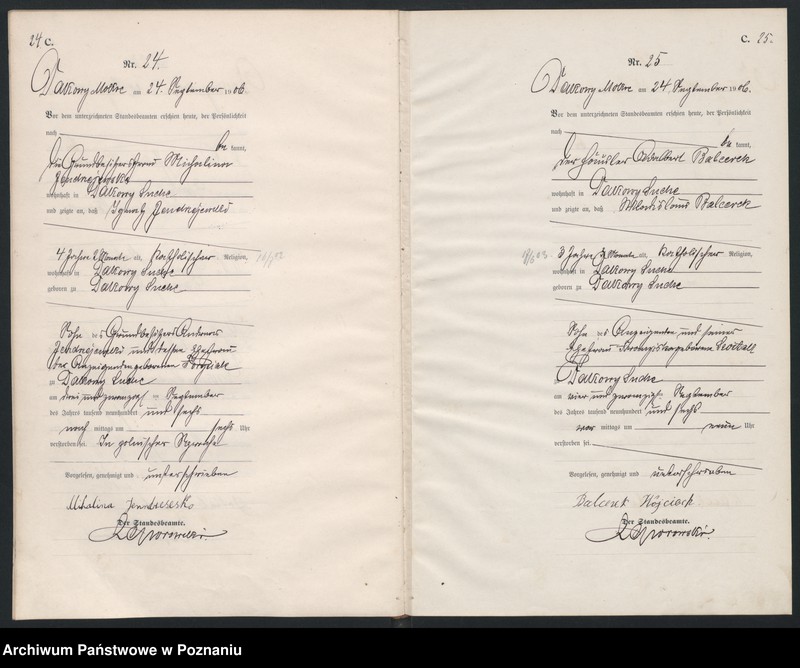 24 C.
Nr. 24.
Dalkowy Mokre am 24. September 1906.
Vor dem unterzeichneten Standesbeamten erschien heute, der Persönlichkeit
nach
bekannt,
die Grundbesitzersfrau Michalina
wohnhaft in Dalkowy Suche
und zeigte an, daß Ignatz
4 Jahre 2 Monate alt, katholischer Religion,
wohnhaft in Dalkowy Suche
geboren zu Dalkowy Suche
Sohn des Grundbesitzers Andreas
und dessen Ehefrau
der Anzeigenden geborenen
zu Dalkowy Suche
am drei und zwanzigsten September
des Jahres tausend neunhundert und sechs
nach mittags um sechs Uhr
verstorben sei. In polnischer Sprache
Vorgelesen, genehmigt und unterschrieben
Michalina
Der Standesbeamte.
C. 25.
Nr. 25
Dalkowy Mokre am 24. September 1906.
Vor dem unterzeichneten Standesbeamten erschien heute, der Persönlichkeit
nach
bekannt,
der Häusler Adalbert Balcerek
wohnhaft in Dalkowy Suche
und zeigte an, daß Wladislaus Balcerek
3 Jahre Monate alt, katholischer Religion,
wohnhaft in Dalkowy Suche
geboren zu Dalkowy Suche
Sohn des Anzeigenden und seiner
Ehefrau geborenen
Dalkowy Suche
am vier und zwanzigsten September
des Jahres tausend neunhundert und sechs
vor mittags um neun Uhr
verstorben sei.
Vorgelesen, genehmigt und unterschrieben
Balcerek Wojciech
Der Standesbeamte.
Archiwum Państwowe w Poznaniu